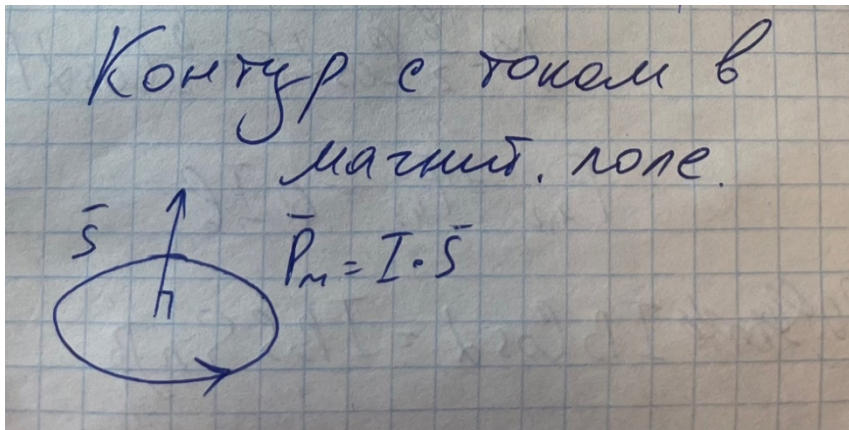 Контур с током в
магнит. поле.
S̄
P̄м = I · S̄